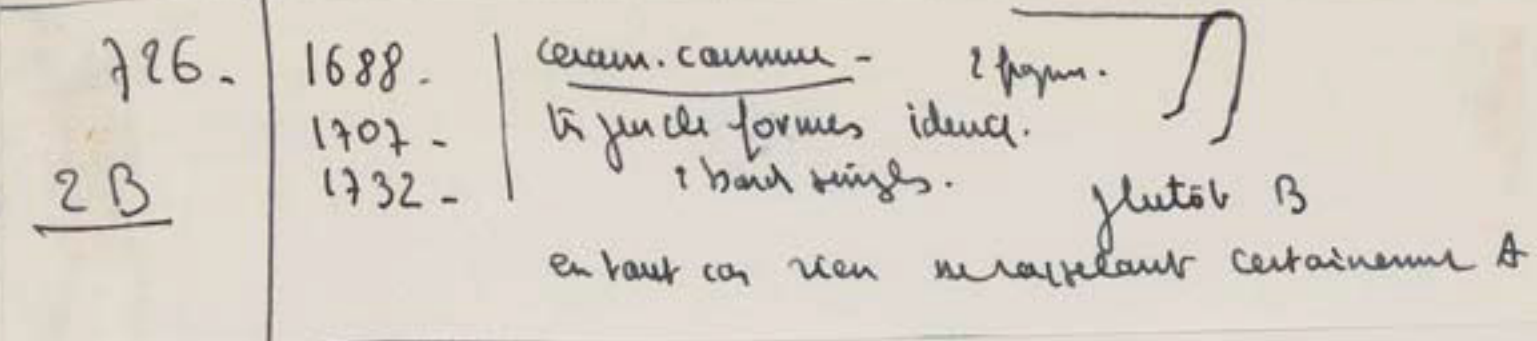 726. 1688. ceram. commune - 2 fragm.
1707 - très peu de formes identif.
2B 1732 - bord simples.
plutôt B
en tout cas rien ne rappelant certainement A